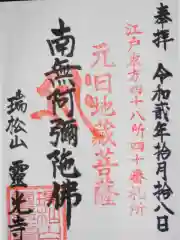 奉拝
令和貳年拾月拾八日
江戸東方四十八所四十番札所
元旧地蔵菩薩
南無阿彌陀佛
瑞松山
靈光寺